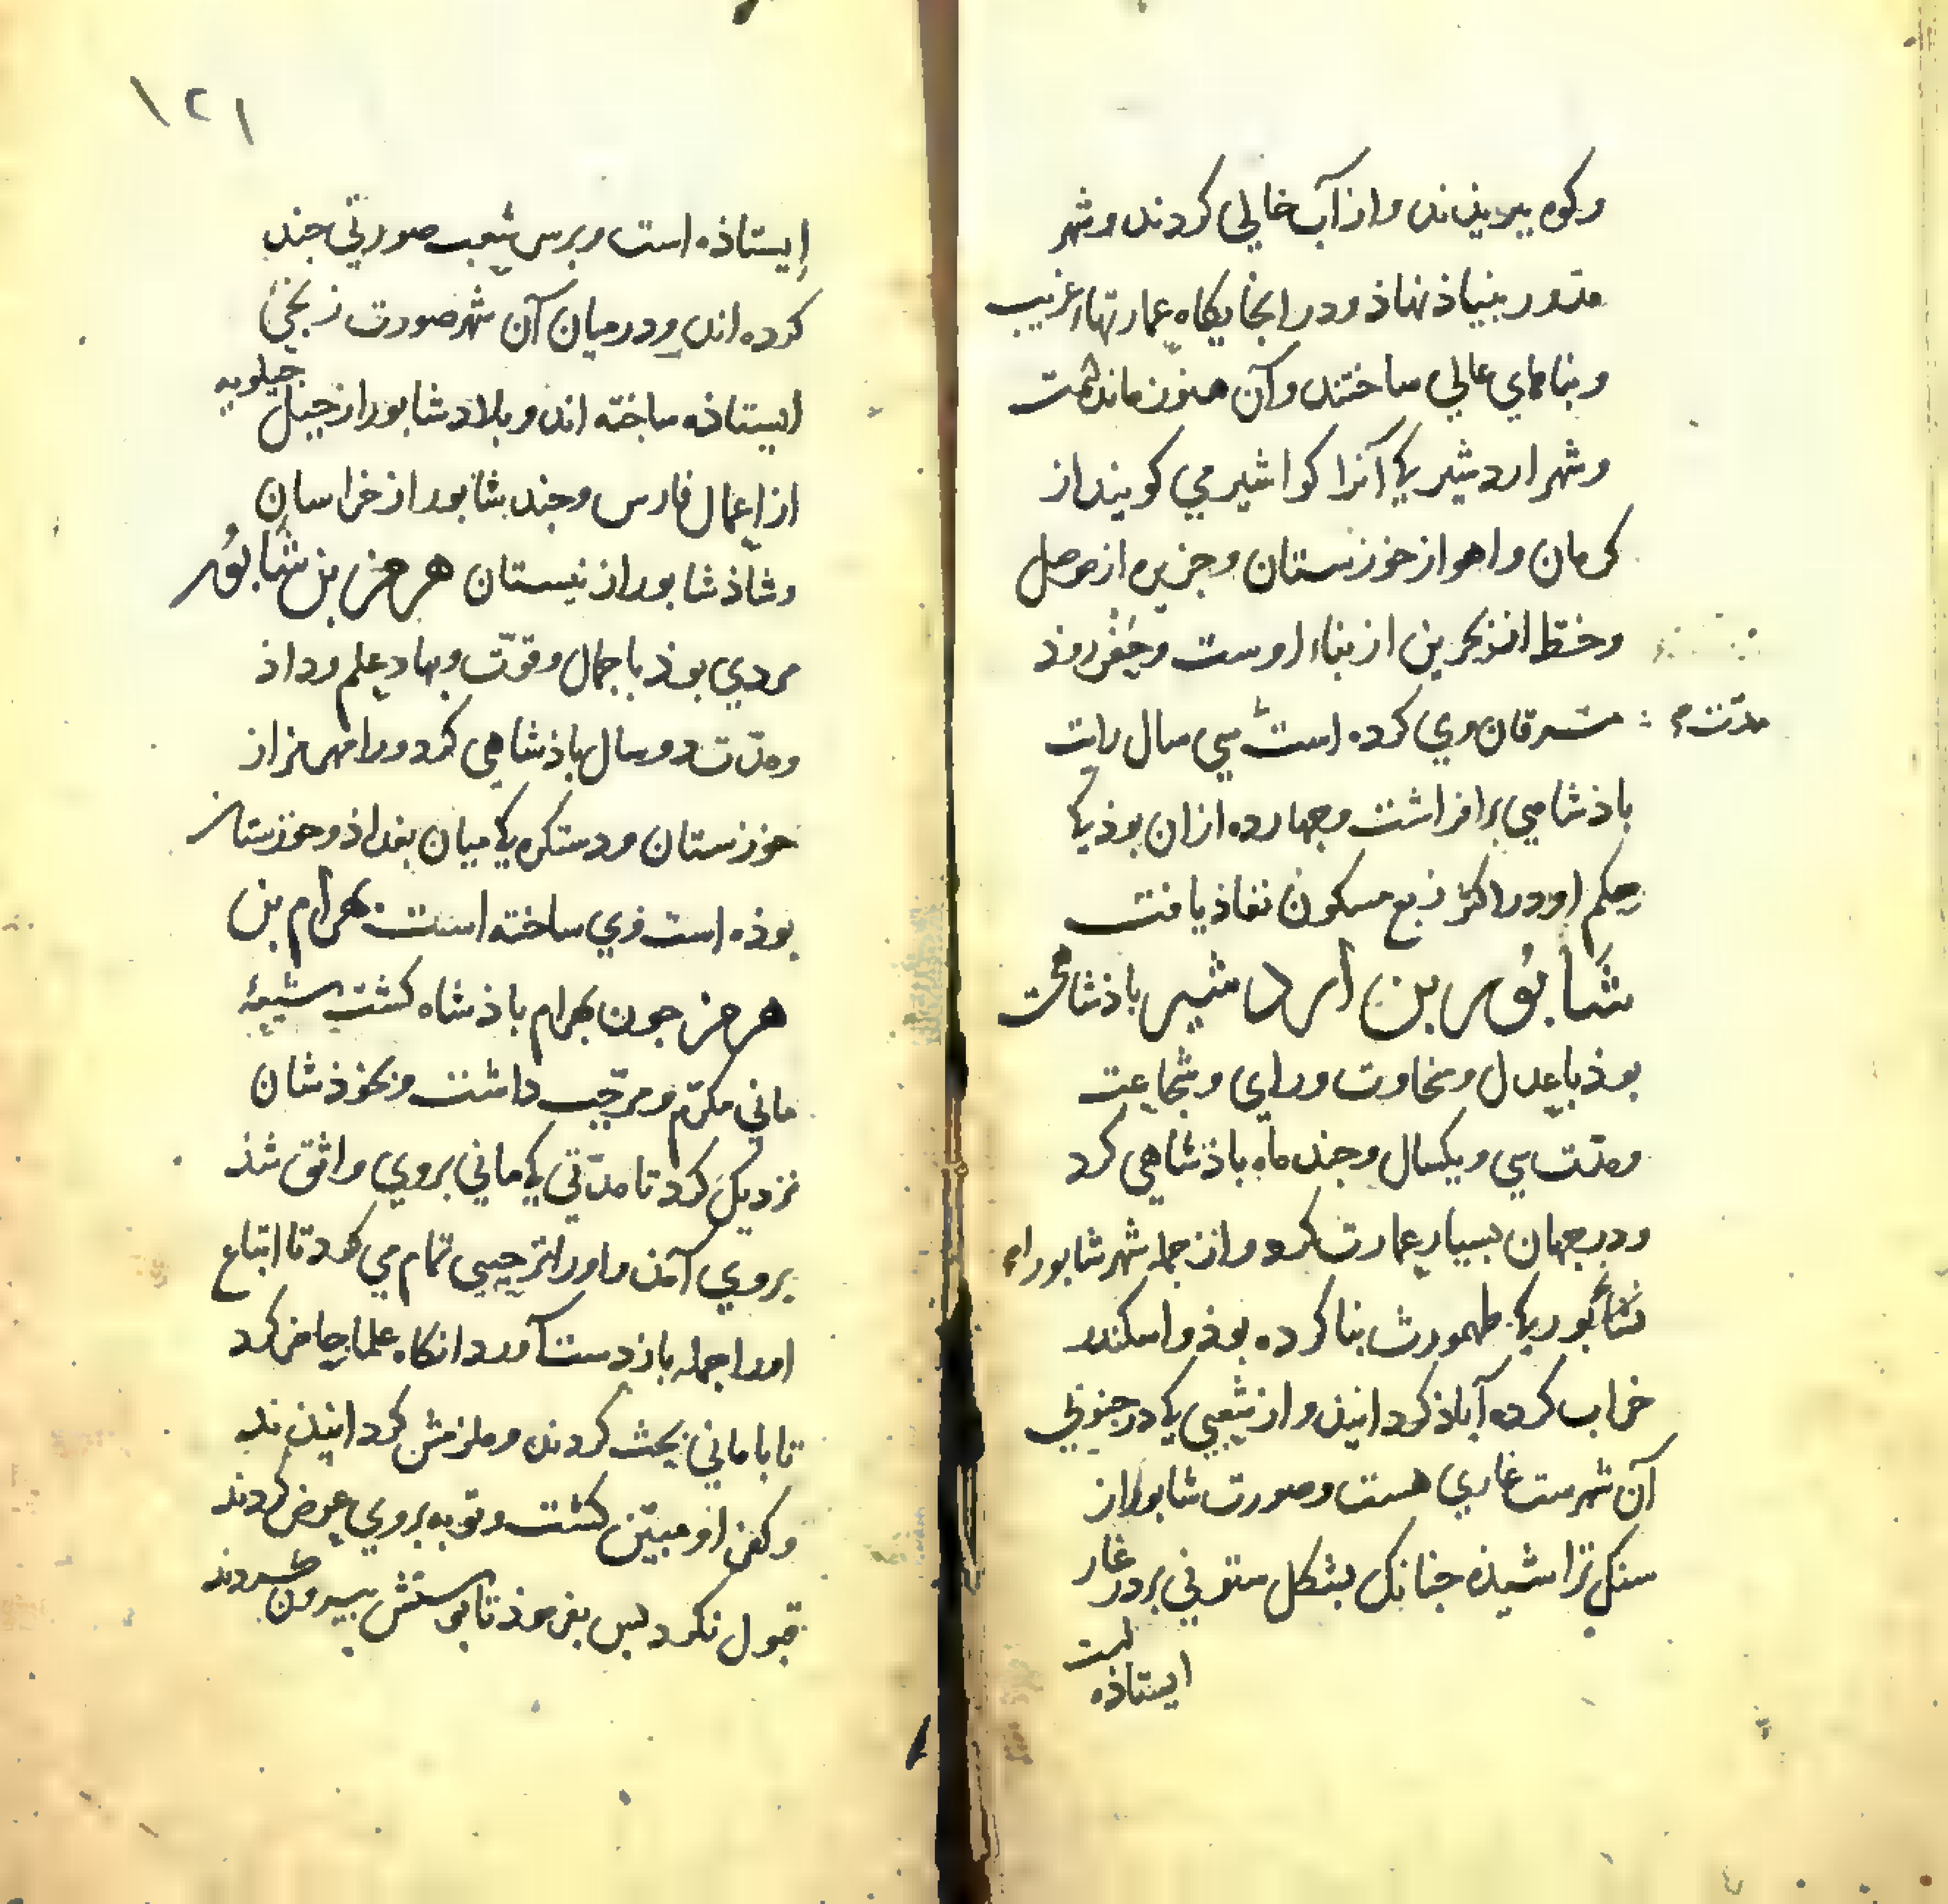 وكوه ببریذند واز آب خالي كردند وشهر
مدور بنیاذ نهاذ ودر انجایكاه عمارتهاء غریب
وبناهاي عالي ساختند وآن هنوز مانده است
وشهر اردشیر كی آنرا كواشیر مي كویند از
كرمان واهواز خوزستان وجزیره از موصل
وخط از بحرین از بناء اوست وحفر روذ
مسرقان وي كرده است سي سال رایت
مدت
باذشاهي برافراشت وجهارده ازان بوذ كی
حكم او در اكثر ربع مسكون نفاذ یافت
شابور بن اردشیر باذشاهی
بوذ با عدل وسخاوت وراي وشجاعت
ومدت سي ویكسال وجند ماه باذشاهي كرد
ودر جهان بسیار عمارت كرد واز جمله شهر شابور
نشابور كی طهمورث بنا كرده بوذ واسكندر
خراب كرده آباذ كردانیذ واز شعبي كی در جنوبي
آن شهرست غاري هست وصورت شابور از
سنك تراشیذه جنانك بشكل ستوني بر در غار
ایستاذه است
۱۲۱
ایستاذه است وبرس شعب صورتي جند
كرده اند ودر میان آن شهر صورت زنجي
ایستاذه ساخته اند وبلاد شابور از جبل جیلویه
از اعمال فارس وجند شابور از خراسان
وشاذ شابور از نیستان هرمز بن شابور
مردي بوذ با جمال وقوت وبهاء وعلم وداذ
ومدت دو سال باذشاهي كرد ورامهرمز از
خوزستان ودستكره كی میان بغداذ وخوزستان
بوذه است وي ساخته است بهرام بن
هرمز جون بهرام باذشاه كشت شیعهٔ
ماني مكرم ومرحب داشت وبخوذشان
نزدیك كرد تا مدتي كی ماني بروي واثق شذ
بروي آمذ واورا ترحیبي تمام مي كرد تا اتباع
اورا جمله باز دست آورد انكاه علما حاضر كرد
تا با ماني بحث كردند وملزمش كردانیذند
وكفر او مبین كشت وتوبه بروي عرض كردند
قبول نكرد بس بفرموذ تا بوستش بیرون كردند